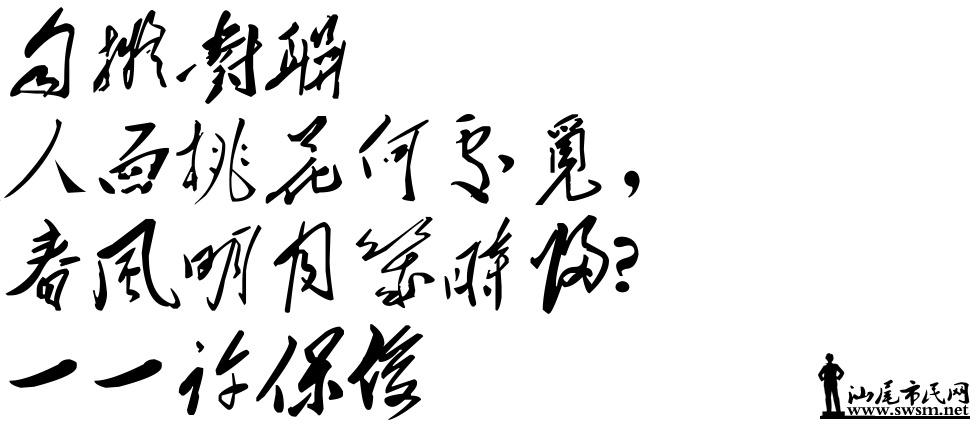 自擬對聯
人面桃花何處覓，
春風明月幾時歸?
一一許保俊
汕尾市民网
www.swsm.net